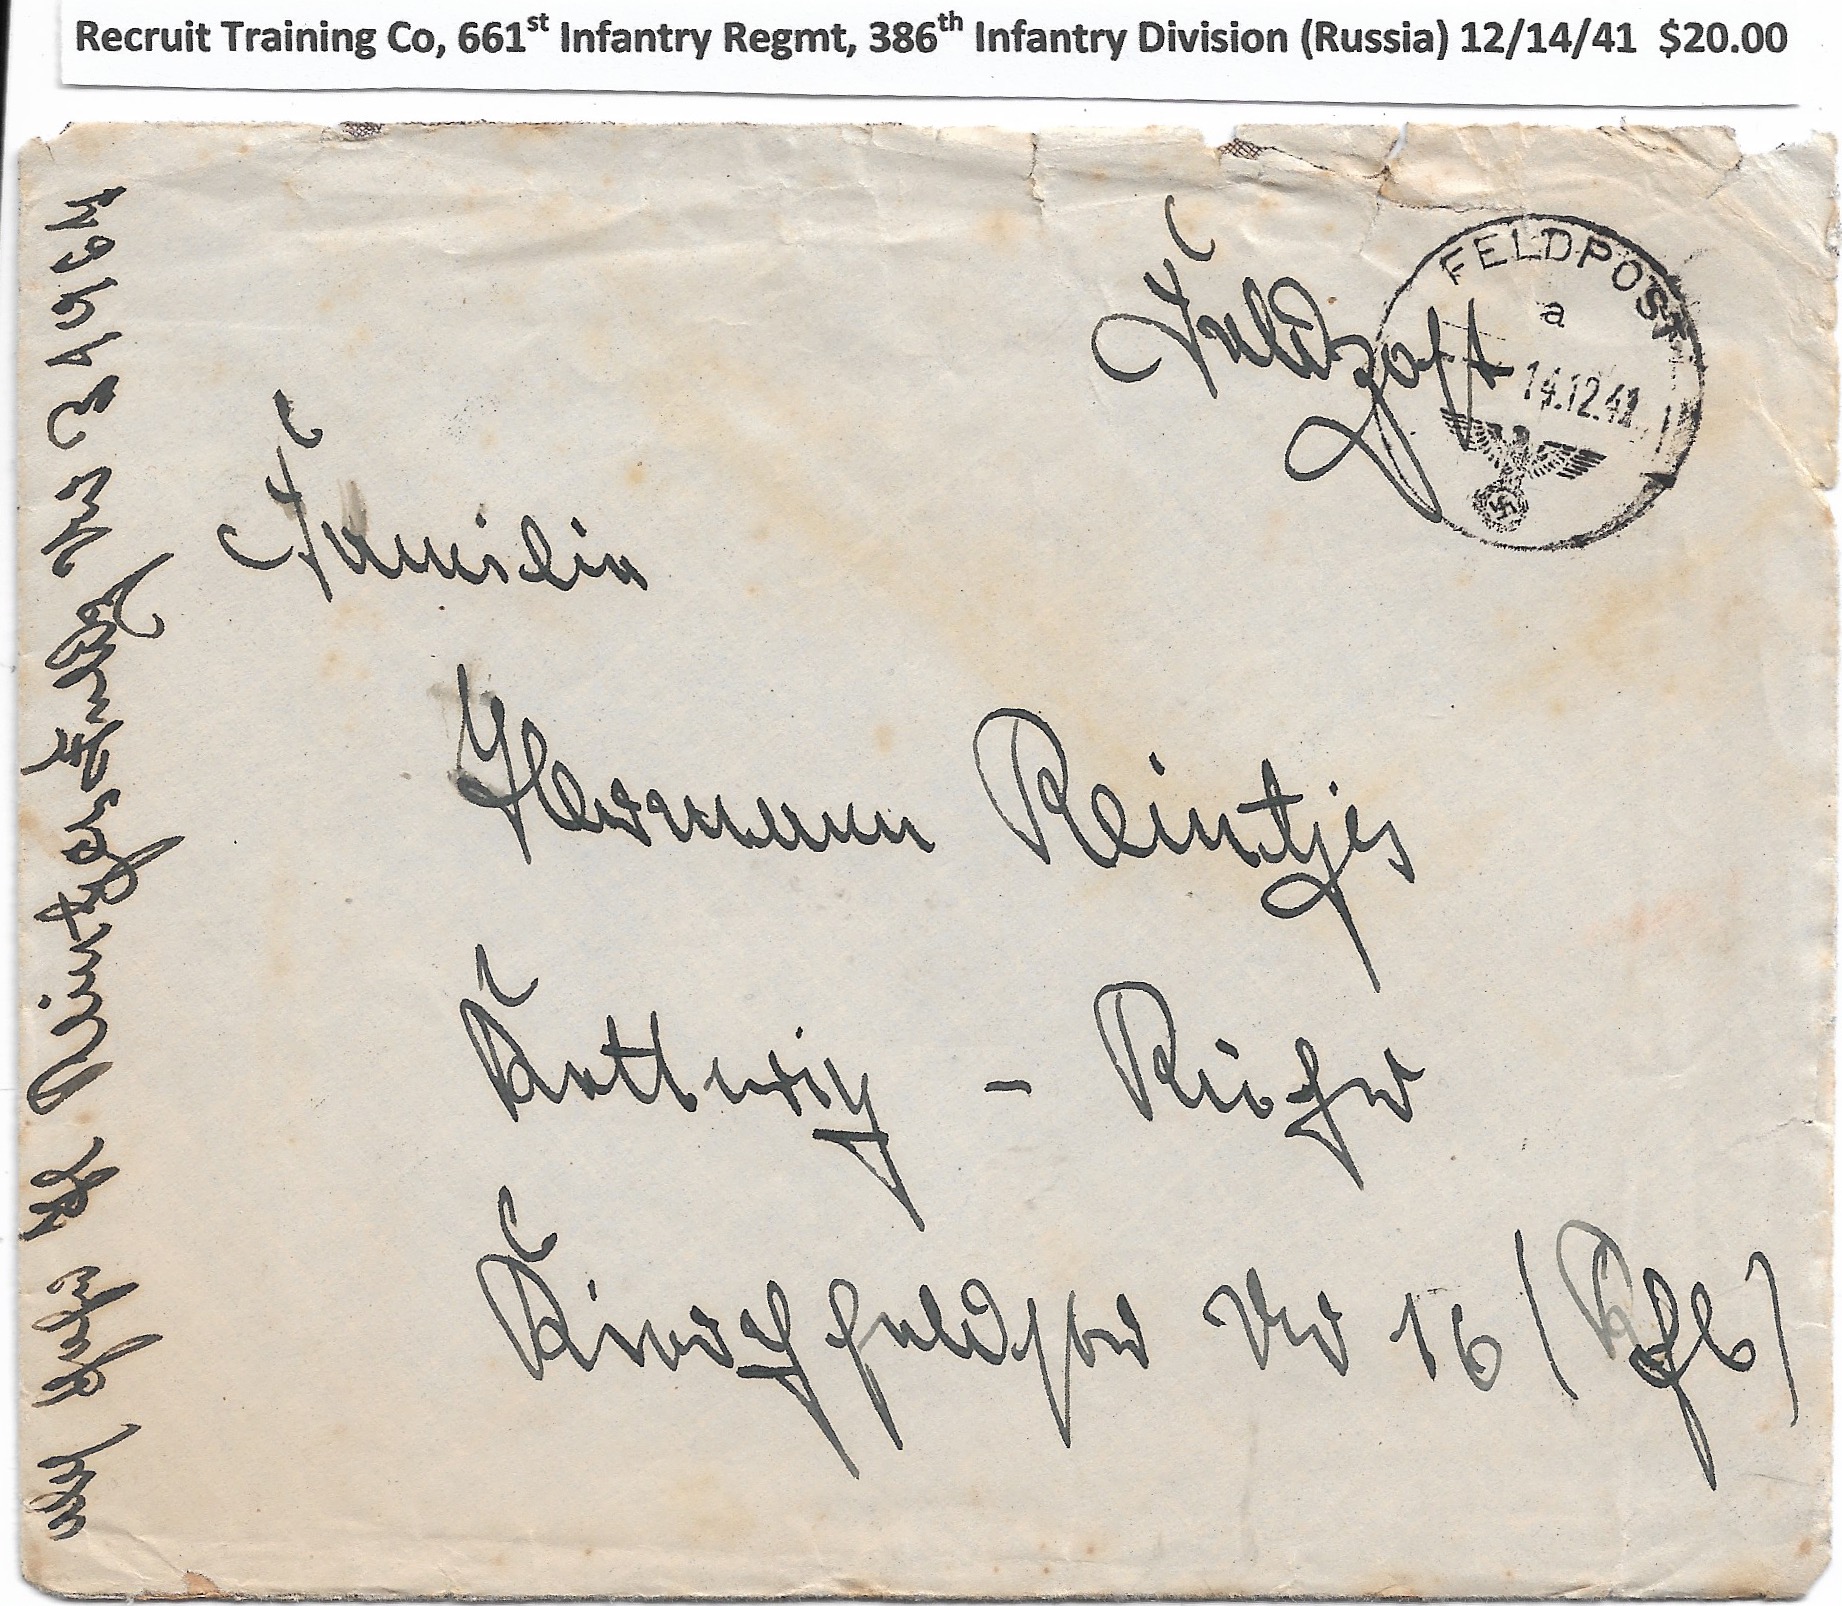 Recruit Training Co, 661st Infantry Regmt, 386th Infantry Division (Russia) 12/14/41 $20.00
Feldpost
FELDPOST
a
14.12.41
Familie
Hermann Reintjes
Kettwig - Ruhr
Kirchfeldstr Nr 16
Reintjes Feldpost Nr